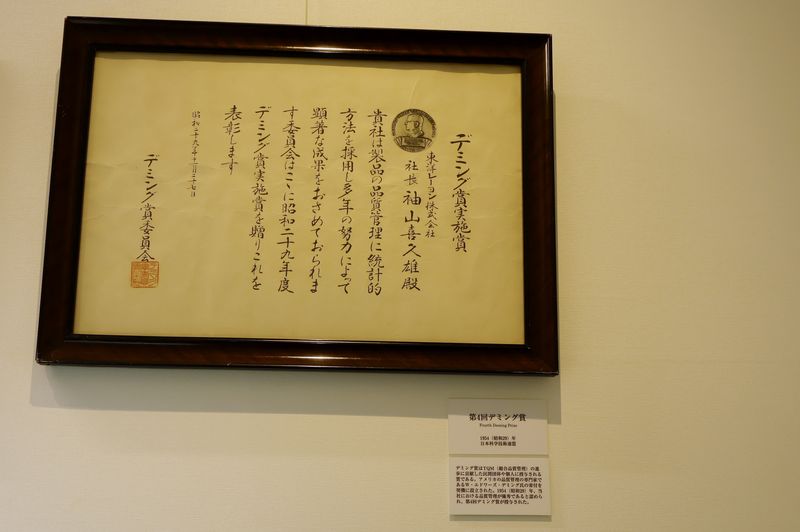 デミング賞実施賞
東洋レーヨン株式会社
社長 袖山喜久雄殿
貴社は製品の品質管理に統計的
方法を採用し多年の努力によって
顕著な成果をおさめておられま
す委員会はこゝに昭和二十九年度
デミング賞実施賞を贈りこれを
表彰します
昭和二十九年十一月二十七日
デミング賞委員会
第4回デミング賞
Fourth Deming Prize
1954(昭和29)年
日本科学技術連盟
デミング賞はTQM(総合品質管理)の進
歩に貢献した民間団体や個人に授与される
賞である。アメリカの品質管理の専門家で
あるW・エドワーズ・デミング氏の寄付を
契機に設立された。1954(昭和29)年、当
社における品質管理が優秀であると認めら
れ、第4回デミング賞が授与された。